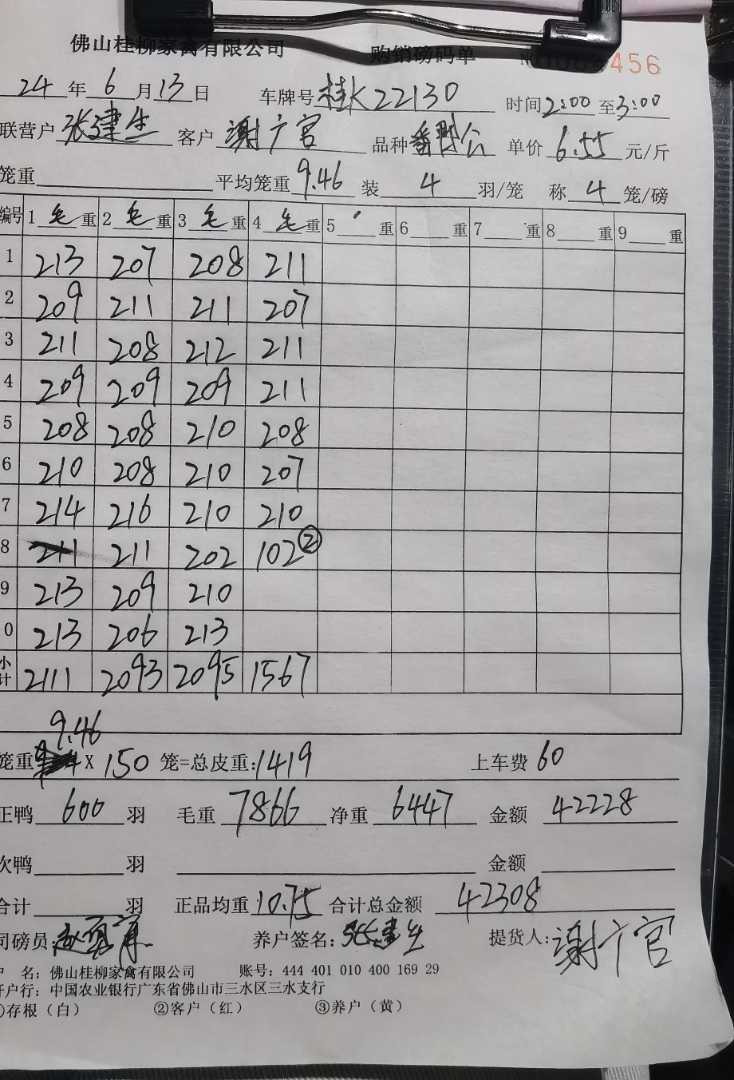 佛山桂柳家禽有限公司 购销磅码单 456
24年6月13日 车牌号桂K22130 时间2:00至3:00
联营户张建生 客户谢广官 品种番鸭公 单价6.55元/斤
笼重 平均笼重9.46装4羽/笼 称4笼/磅
编号 1毛重 2毛重 3毛重 4毛重 5重 6重 7重 8重 9重
1 213 207 208 211
2 209 211 211 207
3 211 208 212 211
4 209 209 209 211
5 208 208 210 208
6 210 208 210 207
7 214 216 210 210
8 211 211 202 102②
9 213 209 210
0 213 206 213
小计 2111 2093 2095 1567
9.46
笼重 X 150笼=总皮重:1419 上车费60
正鸭600羽 毛重7866净重6447 金额42228
次鸭羽 金额
合计羽 正品均重10.75合计总金额42308
司磅员: 养户签名:张建生 提货人:谢广官
户 名:佛山桂柳家禽有限公司 账号:444 401 010 400 169 29
开户行:中国农业银行广东省佛山市三水区三水支行
①存根(白) ②客户(红) ③养户(黄)